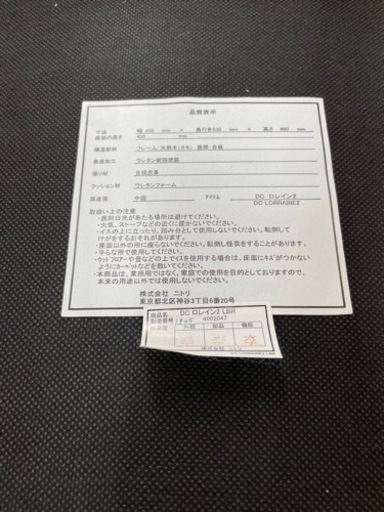 品質表示
寸法 幅 450 mm × 奥行き530 mm × 高さ 880 mm
座面の高さ 420 mm
構造部材 フレーム:天然木(タモ) 座面:合板
表面加工 ウレタン樹脂塗装
張り材 合成皮革
クッション材 ウレタンフォーム
原産国 中国 アイテム DC ロレイン2
DC LORRAINE2
取扱い上の注意
・直射日光があたる場所は避けてください。
・火気、ストーブなどの近くに置かないでください。
・イスの上に立ったり、踏み台として使用しないでください。転倒して
けがをするおそれがあります。
・座面以外の所に座らないでください。転倒し怪我をすることがあります。
・平らな所で使用してください。
・ウッドフロアーや畳などの上でイスを使用する場合は、床面にキズがつかない
ようにカーペットなどを敷いてください。
・本商品は、業務用ではなく、家庭での使用を目的としていますので、
本来の用途以外では使用しないでください。
株式会社 ニトリ
東京都北区神谷3丁目6番20号
商品名 DC ロレイン2 LBR
4002047
外観 部品 機能
株式会社 ニトリ